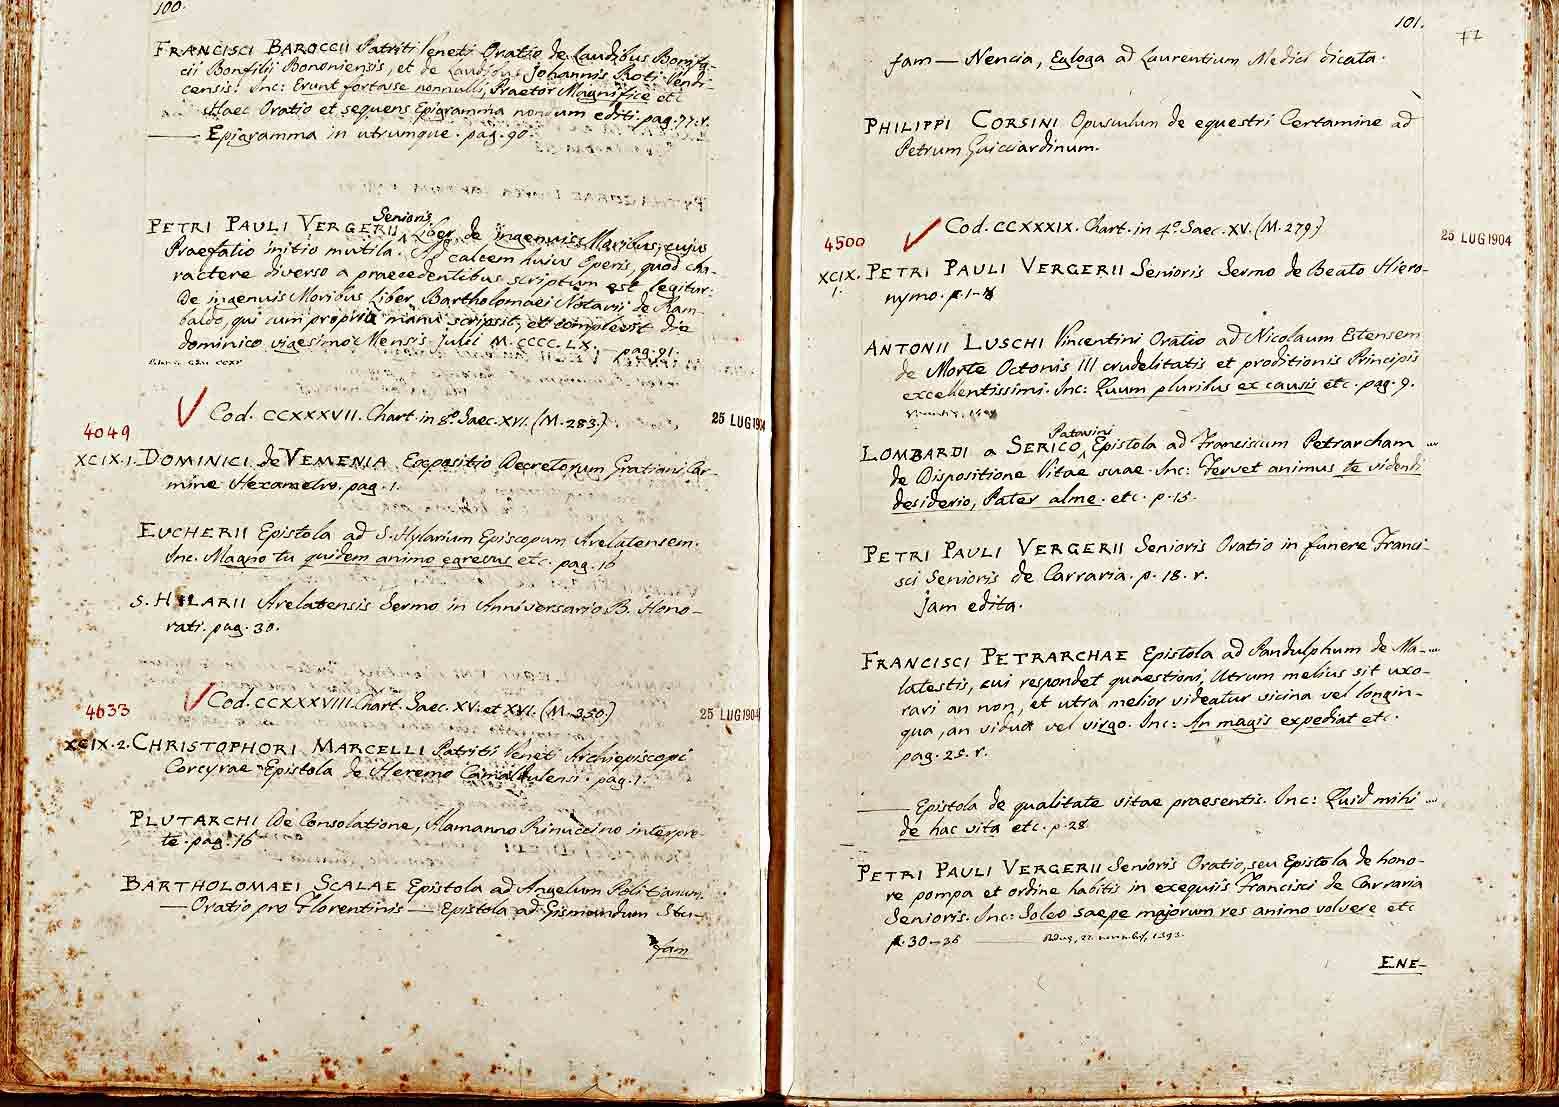 100.
FRANCISCI BAROCCII Patriti Veneti Oratio de Laudibus Bonifa-
cii Bonfilij Bononiensis, et de Laudibus Johannis Roti Vendi-
censis. Inc: Erunt fortasse nonnulli, Praetor Magnifice etc
Haec Oratio et sequens Epigramma nondum editi. pag. 77. r.
—— Epigramma in utrumque. pag. 90.
PETRI PAULI VERGERII Senioris Liber de ingenuis Moribus, cujus
Praefatio initio mutila. In calcem huius Operis, quod cha-
ractere diverso a praecedentibus scriptum est legitur:
De ingenuis Moribus Liber Bartholomaei Notarii de Ram-
baldo, qui eum propria manu scripsit, et complevit die
dominico vigesimo Mensis Julii M.CCCC.LX. —— pag. 91.
Cod. CCXXXVII. Chart. in 8º Saec. XVI. (M. 283.)
25 LUG 1904
4049
XCIX. 1. DOMINICI de VEMENIA Expositio Decretorum Gratiani Car-
mine Hexametro. pag. 1.
EUCHERII Epistola ad S. Hylarium Episcopum Arelatensem.
Inc. Magno tu quidem animo egressus etc. pag. 16
S. HILARII Arelatensis Sermo in Anniversario B. Hono-
rati. pag. 30.
Cod. CCXXXVIII. Chart. Saec. XV. et XVI. (M. 350.)
4633
25 LUG 1904
XCIX. 2. CHRISTOPHORI MARCELLI Patritii Veneti Archiepiscopi
Corcyrae Epistola de Heremo Camaldulensi. pag. 1.
PLUTARCHI De Consolatione, Alamanno Rinuccino interpre-
te. pag. 16
BARTHOLOMAEI SCALAE Epistola ad Angelum Politianum.
—— Oratio pro Florentinis —— Epistola ad Sismundum Stu-
fam
101.
77
fam — Nencia, Egloga ad Laurentium Medici dicata.
PHILIPPI CORSINI Opusculum de equestri Certamine ad
Petrum Guicciardinum.
Cod. CCXXXIX. Chart. in 4º Saec. XV. (M. 279.)
4500
25 LUG 1904
XCIX. PETRI PAULI VERGERII Senioris Sermo de Beato Hiero-
1. nymo. p. 1-
ANTONII LUSCHI Vincentini Oratio ad Nicolaum Estensem
de Morte Octonis III crudelitatis et proditionis Principis
excellentissimi. Inc: Quum pluribus ex causis etc. pag. 9.
LOMBARDI a SERICO Patavini Epistola ad Franciscum Petrarcham
de Dispositione Vitae suae. Inc: Fervet animus te videndi
desiderio, Pater alme. etc. p. 15.
PETRI PAULI VERGERII Senioris Oratio in funere Franci-
sci Senioris de Carraria. p. 18. r.
jam edita.
FRANCISCI PETRARCHAE Epistola ad Pandulphum de Ma-
latestis, cui respondet quaestioni, Utrum melius sit uxo-
rari an non, et utra melior videatur vicina vel longin-
qua, an vidua vel virgo. Inc: An magis expediat etc.
pag. 25. r.
—— Epistola de qualitate vitae praesentis. Inc: Quid mihi
de hac vita etc. p. 28.
PETRI PAULI VERGERII Senioris Oratio, seu Epistola de hono-
re pompa et ordine habitis in exequiis Francisci de Carraria
Senioris. Inc: Soleo saepe majorum res animo volvere etc
p. 30-36 —— 1393.
ENE-